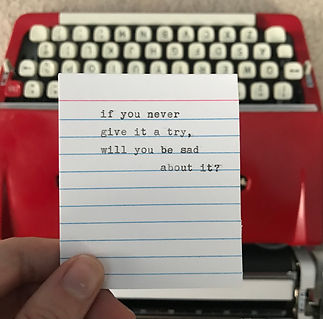 if you never
give it a try,
will you be sad
about it?